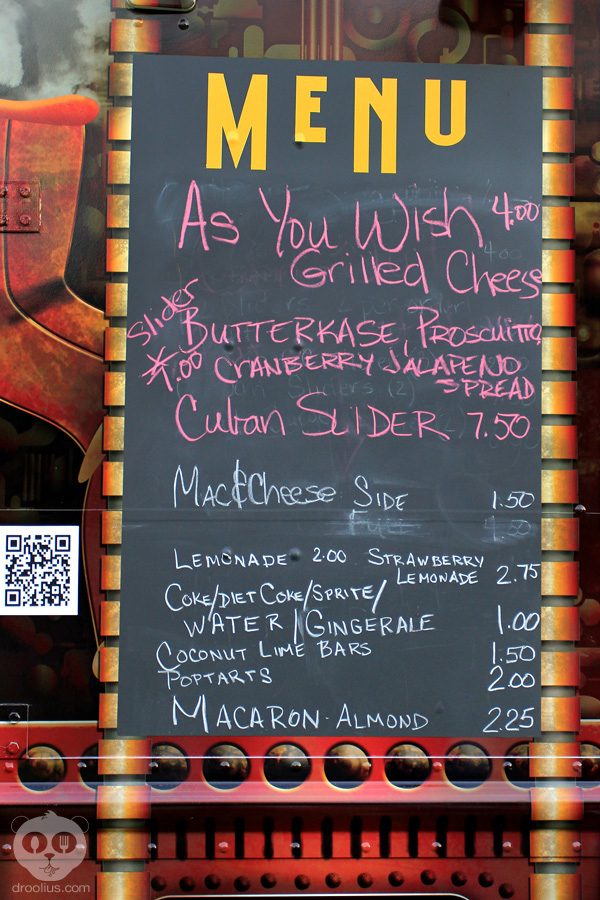 MENU
As You Wish 4.00
Grilled Cheese
Slider BUTTERKASE, PROSCUITTO,
*7.00 CRANBERRY JALAPENO
SPREAD
Cuban SLIDER 7.50
MAC&Cheese SIDE 1.50
LEMONADE 2.00 STRAWBERRY
LEMONADE 2.75
COKE/DIET COKE/SPRITE/
WATER/GINGERALE 1.00
COCONUT LIME BARS 1.50
POPTARTS 2.00
MACARON-ALMOND 2.25
droolius.com